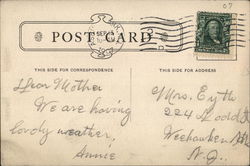 07
SEP
POST CARD
THIS SIDE FOR CORRESPONDENCE
THIS SIDE FOR ADDRESS
Dear Mother
We are having
lovely weather,
Annie
Mrs. Eyth
224
Weehawken
N.J.